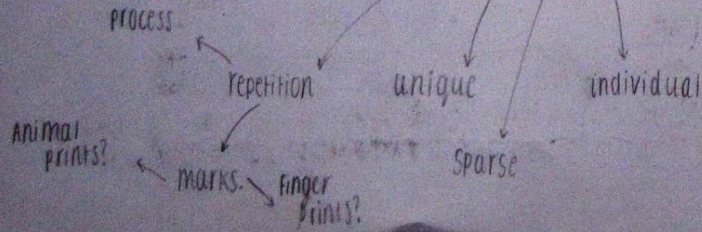 process
repetition
unique
individual
Animal
prints?
sparse
marks.
Finger
prints?